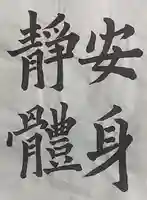 安身
靜體